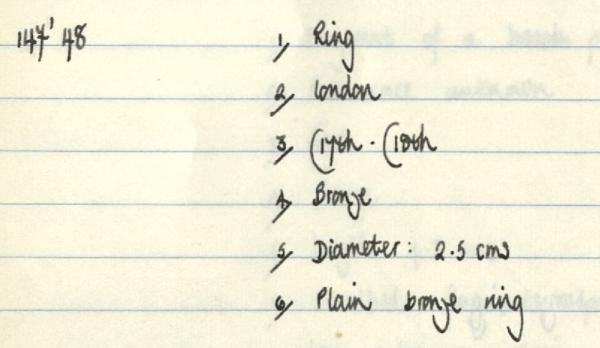 147'48 1, Ring
2, London
3, C17th - C18th
4, Bronze
5, Diameter: 2.5 cms
6, Plain bronze ring